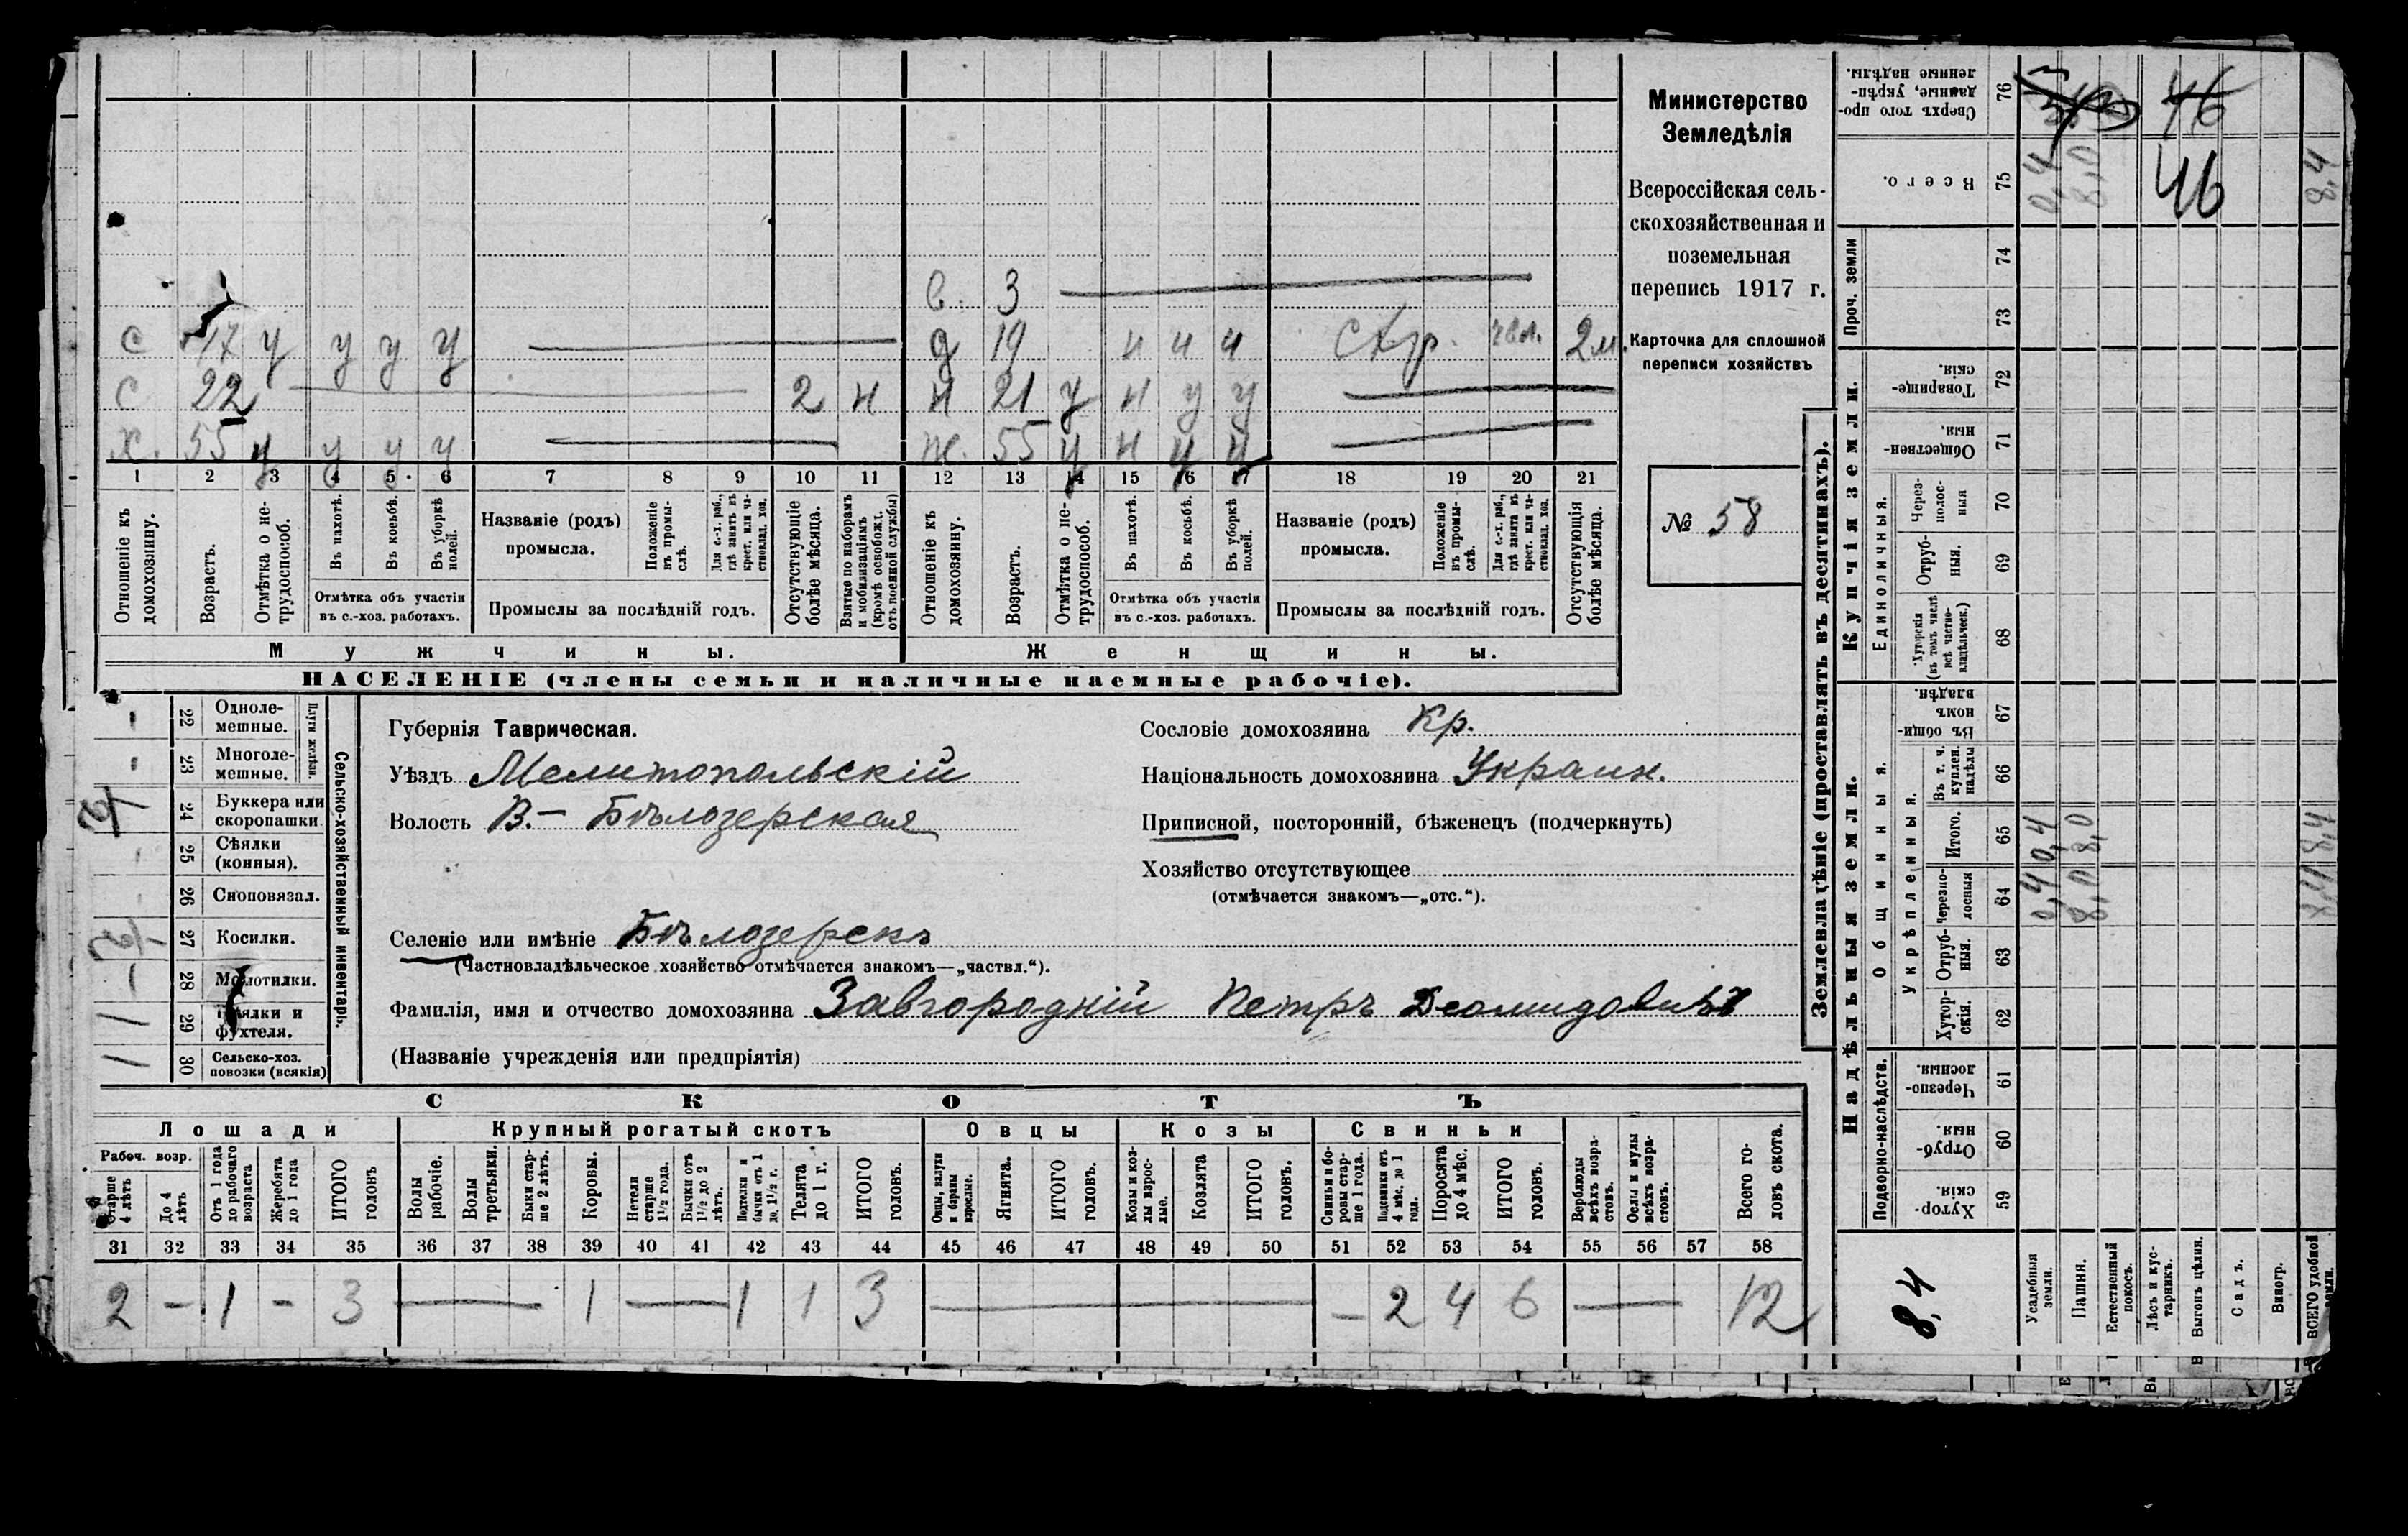 Министерство
Земледѣлія
Всероссійская сель-
скохозяйственная и
поземельная
перепись 1917 г.
Карточка для сплошной
переписи хозяйствъ
№ 58
в. 3
с 17 у у у у д 19 н н н 2 м.
с 22 2 н н 21 у н у у
х. 55 у у у у ж. 55 у н у у
1 2 3 4 5 6 7 8 9 10 11 12 13 14 15 16 17 18 19 20 21
Отношеніе къ домохозяину.
Возрастъ.
Отмѣтка о не-трудоспособ.
Въ пахотѣ.
Въ косьбѣ.
Въ уборкѣ полей.
Отмѣтка объ участіи
въ с.-хоз. работахъ.
Названіе (родъ)
промысла.
Положеніе въ промы-слѣ.
Для с.-х. раб., гдѣ занятъ въ крест. или ча-стновлад. хоз.
Промыслы за послѣдній годъ.
Отсутствующіе болѣе мѣсяца.
Взятые по наборамъ и мобилизаціямъ (кромѣ освобожд. отъ военной службы)
Отношеніе къ домохозяину.
Возрастъ.
Отмѣтка о не-трудоспособ.
Въ пахотѣ.
Въ косьбѣ.
Въ уборкѣ полей.
Отмѣтка объ участіи
въ с.-хоз. работахъ.
Названіе (родъ)
промысла.
Положеніе въ промы-слѣ.
Для с.-х. раб., гдѣ занята въ крест. или ча-стновлад. хоз.
Промыслы за послѣдній годъ.
Отсутствующія болѣе мѣсяца.
Мужчины. Женщины.
НАСЕЛЕНІЕ (члены семьи и наличные наемные рабочіе).
Сельско-хозяйственный инвентарь.
Плуги желѣзн.
22 Одноле-мешные. -
23 Многоле-мешные. -
24 Буккера или скоропашки
25 Сѣялки (конныя). -
26 Сноповязал. -
27 Косилки.
28 Молотилки. -
29 Вѣялки и фухтеля. 1
30 Сельско-хоз. повозки (всякія) 1
Губернія Таврическая.
Уѣздъ Мелитопольскій
Волость В.- Бѣлозерская
Сословіе домохозяина Кр.
Національность домохозяина Украин.
Приписной, посторонній, бѣженецъ (подчеркнуть)
Хозяйство отсутствующее
(отмѣчается знакомъ—„отс.“).
Селеніе или имѣніе Бѣлозерскъ
(Частновладѣльческое хозяйство отмѣчается знакомъ—„частвл.“).
Фамилія, имя и отчество домохозяина Завгородній Петръ Деомидовичъ
(Названіе учрежденія или предпріятія)
СКОТЪ
Лошади Крупный рогатый скотъ Овцы Козы Свиньи
Рабоч. возр.
Старше 4 лѣтъ
До 4 лѣтъ
Отъ 1 года до рабочаго возраста
Жеребята до 1 года
ИТОГО головъ
Волы рабочіе.
Волы третьяки.
Быки стар-ше 2 лѣтъ.
Коровы.
Нетели старше 1½ года.
Бычки отъ 1½ до 2 лѣтъ.
Подтелки и бычки отъ 1 до 1½ г.
Телята до 1 г.
ИТОГО головъ.
Овцы, валухи и бараны взрослые.
Ягнята.
ИТОГО головъ.
Козы и коз-лы взрос-лые.
Козлята
ИТОГО головъ.
Свиньи и бо-ровы стар-ше 1 года.
Подсвинки отъ 4 мѣс. до 1 года.
Поросята до 4 мѣс.
ИТОГО головъ.
Верблюды всѣхъ возра-стовъ.
Ослы и мулы всѣхъ возра-стовъ.
Всего го-ловъ скота.
31 32 33 34 35 36 37 38 39 40 41 42 43 44 45 46 47 48 49 50 51 52 53 54 55 56 57 58
2 - 1 - 3 — 1 — 1 1 3 — - 2 4 6 — 12
Землевладѣніе (проставлять въ десятинахъ).
Купчія земли.
Надѣльныя земли.
Проч. земли
Единоличныя.
Общинныя.
Укрѣпленныя.
Подворно-наслѣдств.
76 Сверхъ того про-данные, укрѣп-ленные надѣлы. 46
75 Всего. 0,4 8,0 46 8,4
74
73
72 Товарище-скія.
71 Обществен-ныя.
70 Черезполос-ныя
69 Отруб-ныя.
68 Хуторскія (въ томъ числѣ всѣ частно-владѣльческ.)
67 Въ общи-номъ владѣн.
66 Въ т. ч. куплен. надѣлы
65 Итого. 0,4 8,0 8,4
64 Черезпо-лосныя 0,4 8,0 8,4
63 Отруб-ныя.
62 Хутор-скія.
61 Черезпо-лосныя.
60 Отруб-ныя.
59 Хутор-скія.
8,4
Усадебныя земли.
Пашня.
Естественный покосъ.
Лѣсъ и кус-тарникъ.
Выгонъ цѣлин.
Садъ.
Виногр.
ВСЕГО удобной земли.